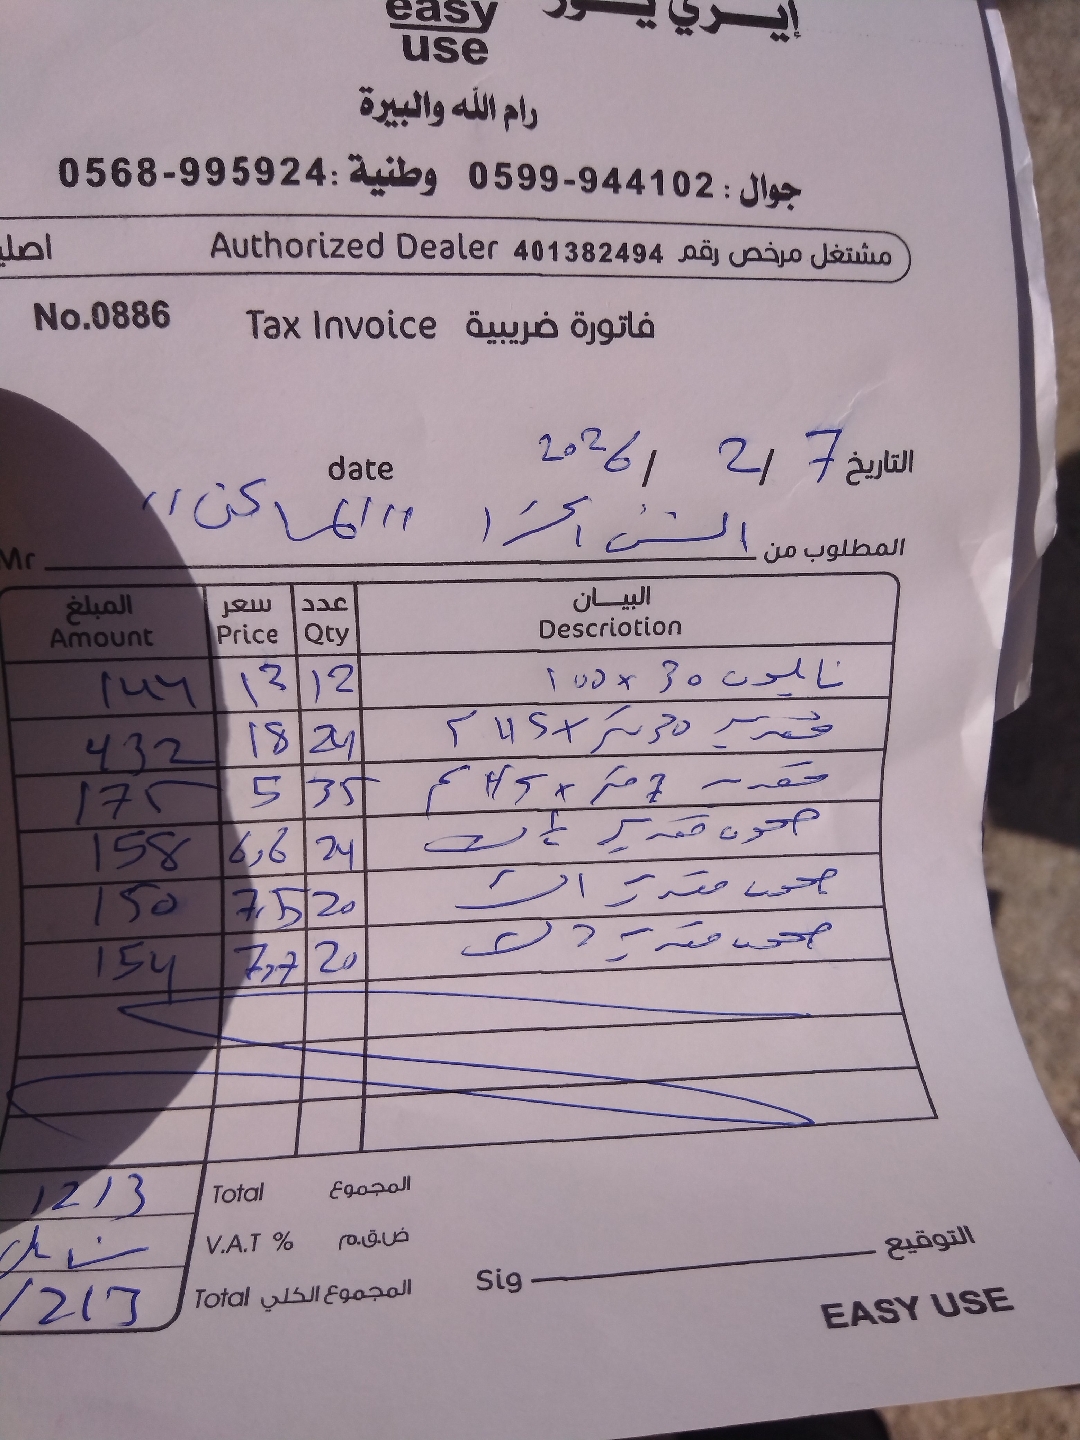 easy إيزي يوز
use
رام الله والبيرة
جوال : 0599-944102 وطنية : 0568-995924
مشتغل مرخص رقم 401382494 Authorized Dealer
No.0886 Tax Invoice فاتورة ضريبية
التاريخ 7 / 2 / 2026 date
المطلوب من Mr
البيــان عدد سعر المبلغ
Descriotion Qty Price Amount
نايلون 30 × 100 12 13 144
30 متر × 45 24 18 432
7 متر × 45 35 5 175
صحون 24 6,6 158
صحون 20 7,5 150
صحون 20 7,7 154
المجموع Total 1213
ض.ق.م V.A.T %
المجموع الكلي Total 1213
التوقيع Sig
EASY USE